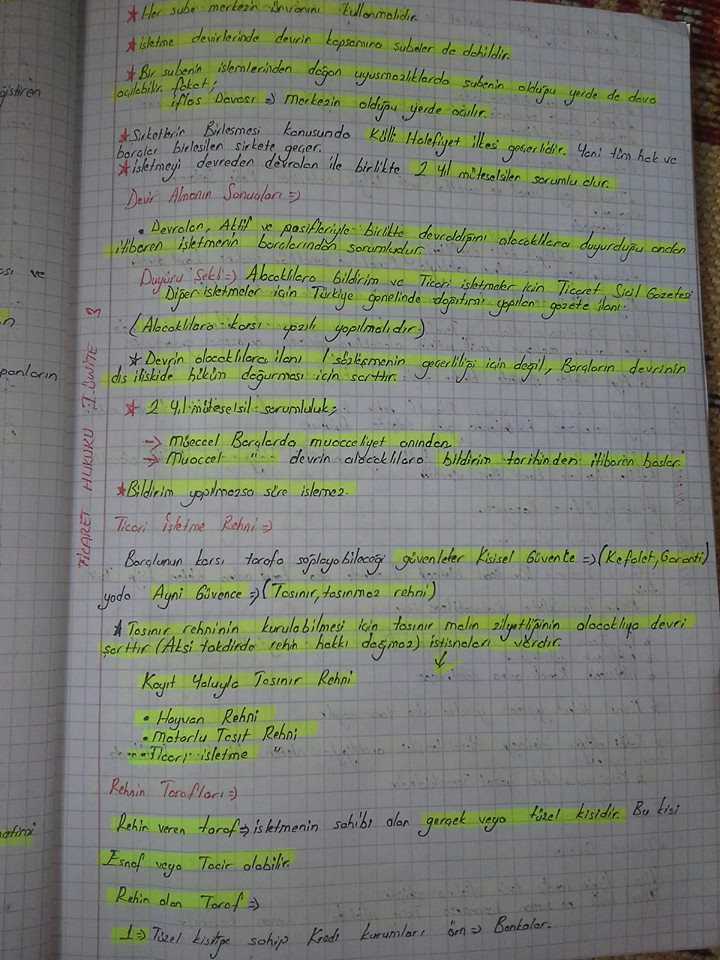 ğiştiren
ası ve
n
panların
TİCARET HUKUKU II. ÜNİTE 3
★ Her şube merkezin ünvanını kullanmalıdır.
★ işletme devirlerinde devrin kapsamına şubeler de dahildir.
★ Bir şubenin işlemlerinden doğan uyuşmazlıklarda şubenin olduğu yerde de dava
açılabilir. fakat;
iflas Davası => Merkezin olduğu yerde açılır.
★ Şirketlerin Birleşmesi konusunda Külli Halefiyet ilkesi geçerlidir. Yani tüm hak ve
borçlar birleşilen şirkete geçer.
★ işletmeyi devreden devralan ile birlikte 2 yıl müteselsilen sorumlu olur.
Devir Almanın Sonuçları =>
• Devralan, Aktif ve pasifleriyle birlikte devraldığını alacaklılara duyurduğu andan
itibaren işletmenin borçlarından sorumludur.
Duyuru Şekli => Alacaklılara bildirim ve Ticari işletmeler için Ticaret Sicil Gazetesi
Diğer işletmeler için Türkiye genelinde dağıtımı yapılan gazete ilanı.
(Alacaklılara karşı yazılı yapılmalıdır)
★ Devrin alacaklılara ilanı / sözleşmenin geçerliliği için değil, Borçların devrinin
dış ilişkide hüküm doğurması için şarttır.
★ 2 yıl müteselsil sorumluluk;
→ Müeccel Borçlarda muacceliyet anından
→ Muaccel " devrin alacaklılara bildirim tarihinden itibaren başlar.
★ Bildirim yapılmazsa süre işlemez.
Ticari İşletme Rehni =>
Borçlunun karşı tarafa sağlayabileceği güvenceler Kişisel Güvence => (Kefalet, Garanti)
yada Ayni Güvence => (Taşınır, taşınmaz rehni)
★ Taşınır rehninin kurulabilmesi için taşınır malın zilyetliğinin alacaklıya devri
şarttır (Aksi takdirde rehin hakkı doğmaz) istisnaları vardır.
↓
Kayıt Yoluyla Taşınır Rehni
• Hayvan Rehni
• Motorlu Taşıt Rehni
• Ticari işletme "
Rehnin Tarafları =>
Rehin veren taraf => işletmenin sahibi olan gerçek veya tüzel kişidir. Bu kişi
Esnaf veya Tacir olabilir.
Rehin alan Taraf =>
1 => Tüzel kişiliğe sahip Kredi kurumları örn => Bankalar.